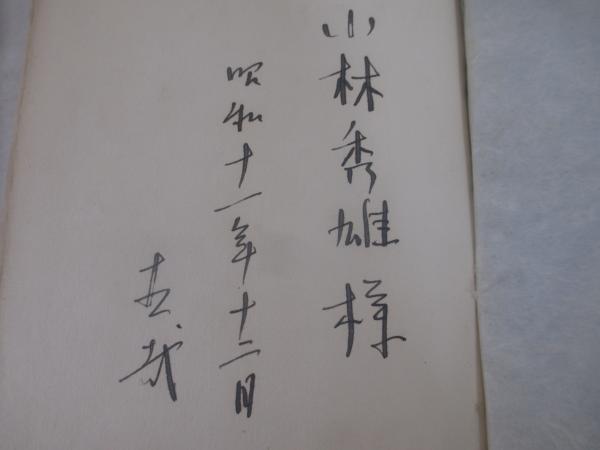 小林秀雄様
昭和十一年十二月
直哉